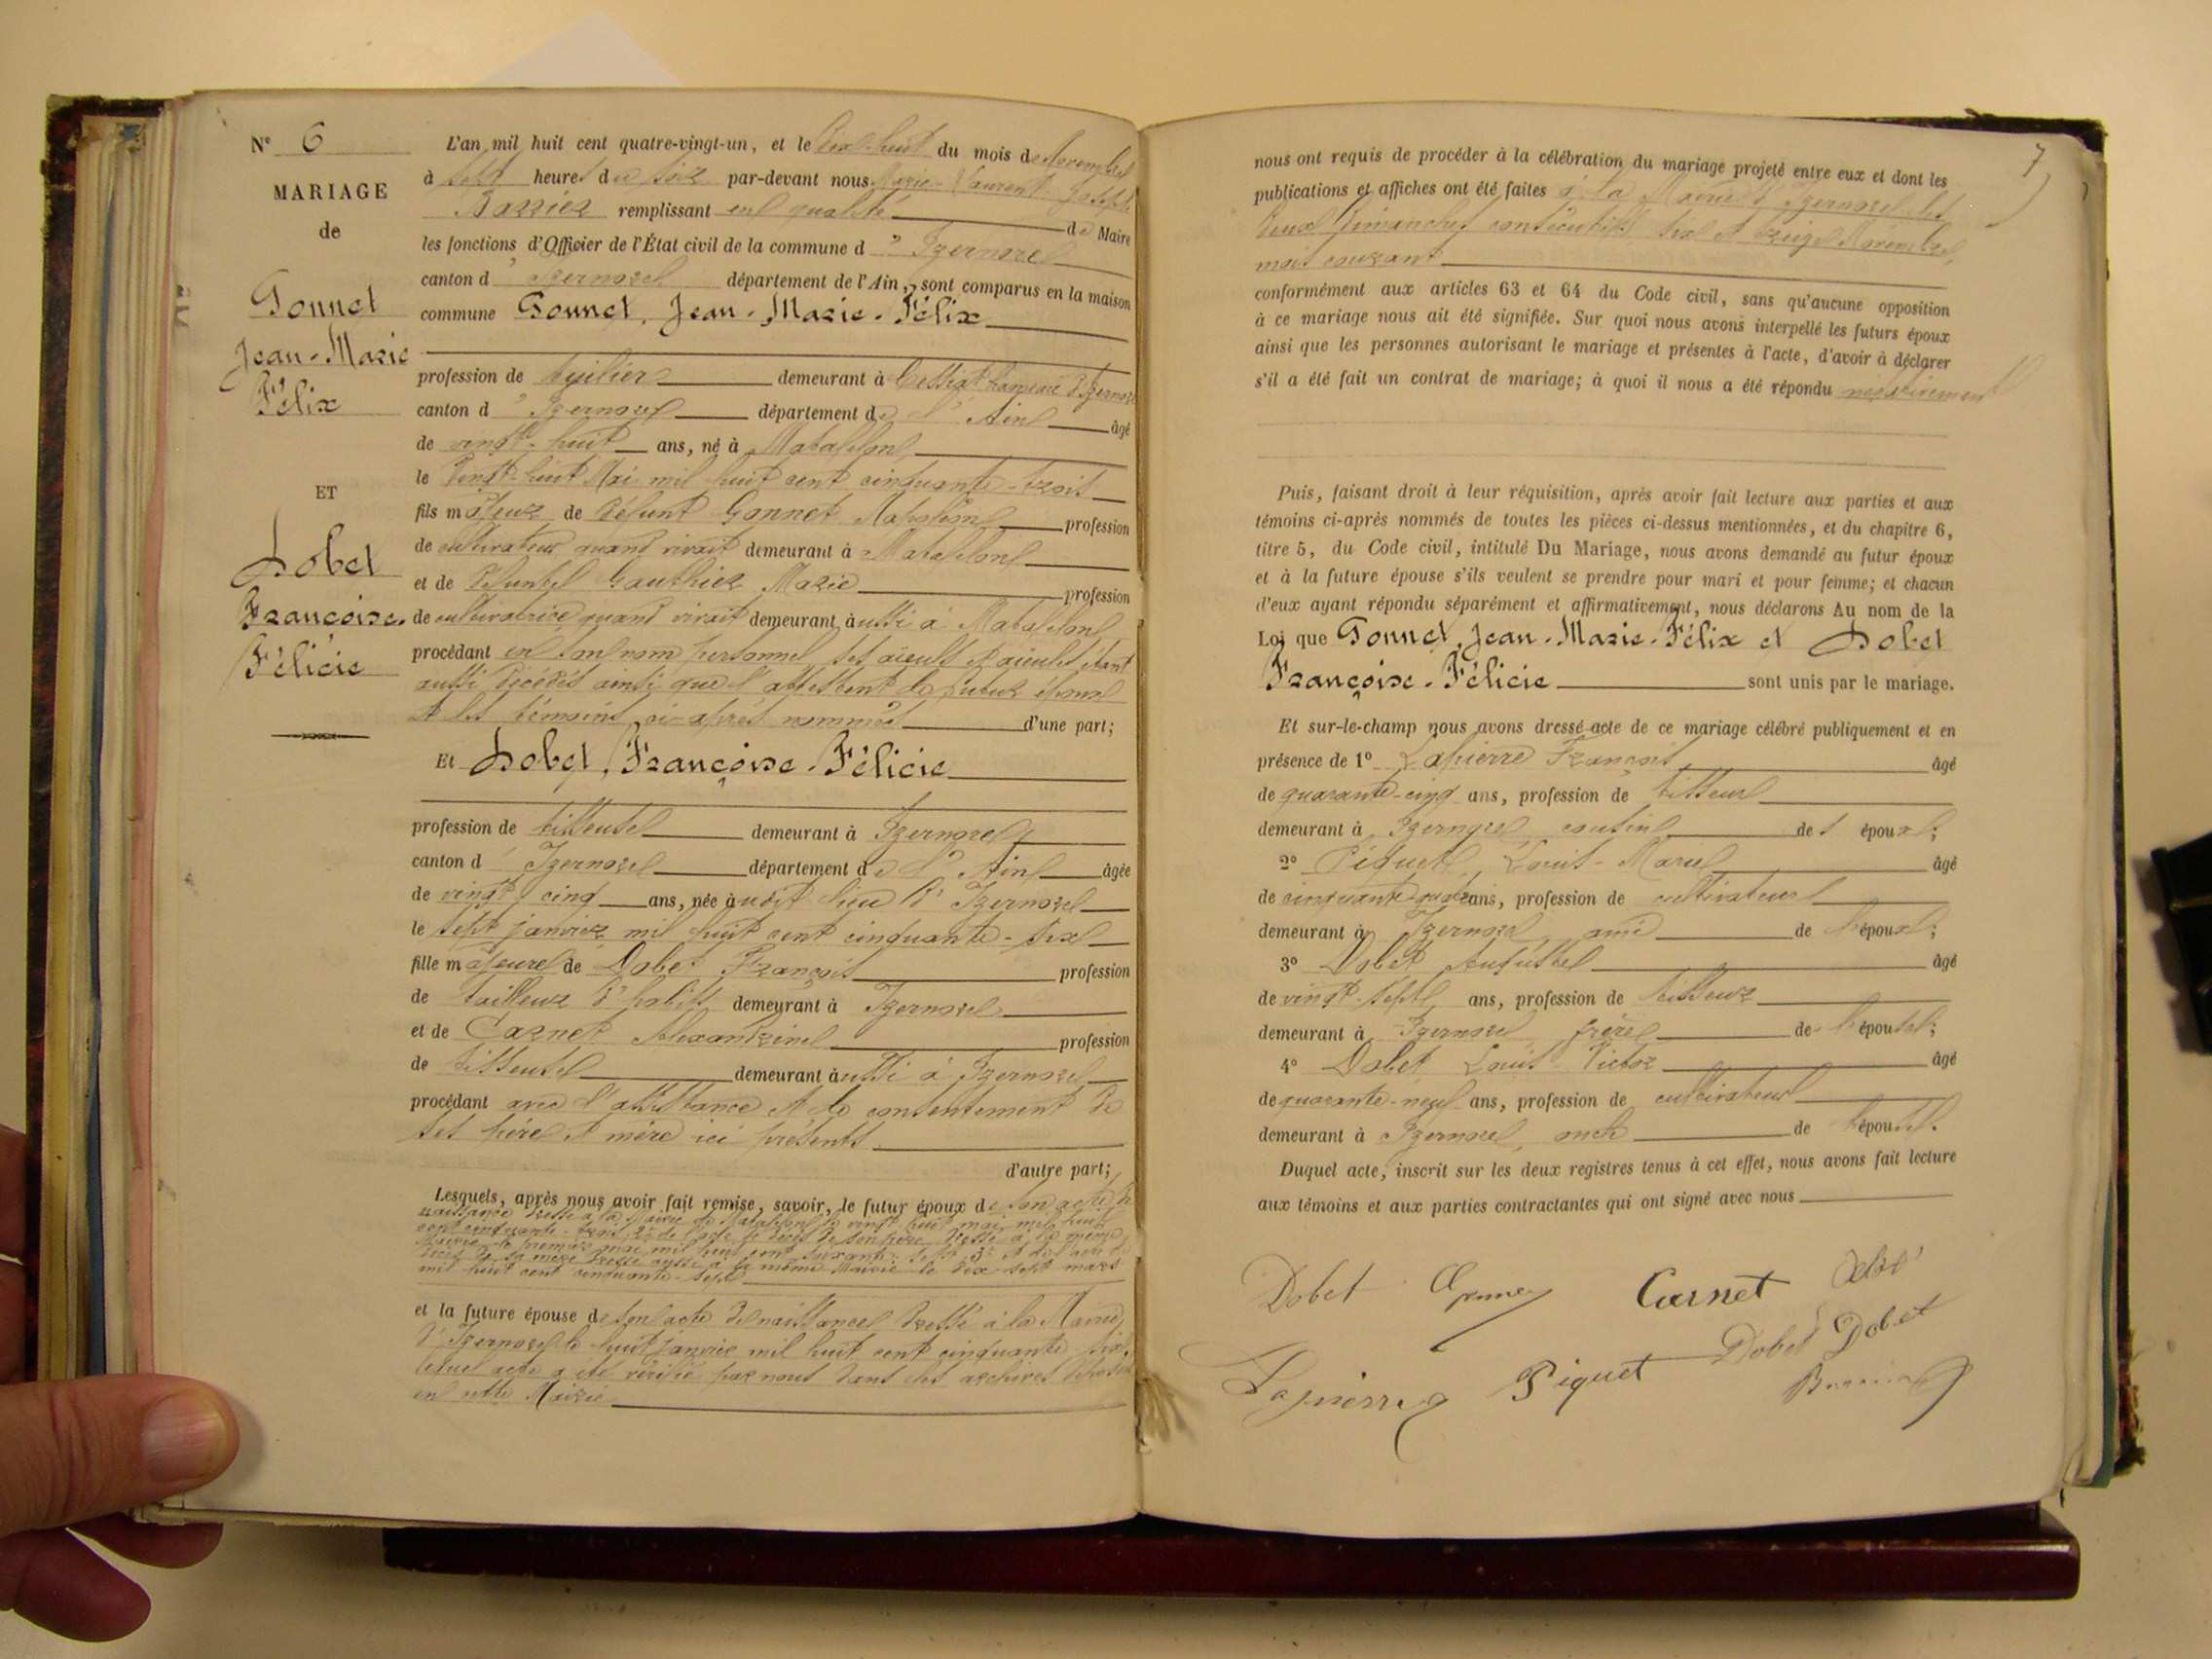 N° 6
MARIAGE
de
Gonnet
Jean-Marie
Félix
ET
Dobet
Françoise
Félicie
L'an mil huit cent quatre-vingt-un, et le dix-huit du mois de Novembre
à sept heures du soir par-devant nous Marie-Laurent Joseph
Barrier remplissant en qualité de Maire
les fonctions d'Officier de l'État civil de la commune d'Izernore
canton d'Izernore département de l'Ain, sont comparus en la maison
commune Gonnet, Jean-Marie-Félix
profession de tuilier demeurant à Cessiat hameau d'Izernore
canton d'Izernore département de l'Ain âgé
de vingt-huit ans, né à Matafelon
le vingt-huit Mai mil huit cent cinquante-trois
fils majeur de défunt Gonnet Napoléon profession
de cultivateur quand vivait demeurant à Matafelon
et de défunte Gauthier Marie profession
de cultivatrice quand vivait demeurant aussi à Matafelon
procédant en son nom personnel ses aïeuls et aïeules étant
aussi décédés ainsi que l'attestent le futur époux
et les témoins ci-après nommés d'une part;
Et Dobet, Françoise-Félicie
profession de tisseuse demeurant à Izernore
canton d'Izernore département de l'Ain âgée
de vingt cinq ans, née audit lieu d'Izernore
le sept janvier mil huit cent cinquante-six
fille majeure de Dobet François profession
de Tailleur d'habits demeurant à Izernore
et de Carnet Alexandrine profession
de tisseuse demeurant aussi à Izernore
procédant avec l'assistance et le consentement de
ses père et mère ici présents
d'autre part;
Lesquels, après nous avoir fait remise, savoir, le futur époux de son acte de
naissance dressé à la Mairie de Matafelon le vingt huit mai mil huit
cent cinquante-trois, 2° de l'acte de décès de son père dressé à la même
Mairie le premier mai mil huit cent soixante-sept 3° et de l'acte de
décès de sa mère dressé aussi à la même Mairie le dix-sept mars
mil huit cent cinquante-sept
et la future épouse de son acte de naissance dressé à la Mairie
d'Izernore le huit janvier mil huit cent cinquante six,
lequel acte a été vérifié par nous dans les archives déposées
en cette Mairie
7
nous ont requis de procéder à la célébration du mariage projeté entre eux et dont les
publications et affiches ont été faites à la Mairie d'Izernore les
deux dimanches consécutifs six et treize Novembre,
mois courant
conformément aux articles 63 et 64 du Code civil, sans qu'aucune opposition
à ce mariage nous ait été signifiée. Sur quoi nous avons interpellé les futurs époux
ainsi que les personnes autorisant le mariage et présentes à l'acte, d'avoir à déclarer
s'il a été fait un contrat de mariage; à quoi il nous a été répondu négativement
Puis, faisant droit à leur réquisition, après avoir fait lecture aux parties et aux
témoins ci-après nommés de toutes les pièces ci-dessus mentionnées, et du chapitre 6,
titre 5, du Code civil, intitulé Du Mariage, nous avons demandé au futur époux
et à la future épouse s'ils veulent se prendre pour mari et pour femme; et chacun
d'eux ayant répondu séparément et affirmativement, nous déclarons Au nom de la
Loi que Gonnet, Jean-Marie-Félix et Dobet
Françoise-Félicie sont unis par le mariage.
Et sur-le-champ nous avons dressé acte de ce mariage célébré publiquement et en
présence de 1° Lapierre François âgé
de quarante-cinq ans, profession de tisseur
demeurant à Izernore, cousin de l'époux;
2° Piquet, Louis-Marie âgé
de cinquante ans, profession de cultivateur
demeurant à Izernore ami de l'époux;
3° Dobet Auguste âgé
de vingt-sept ans, profession de tisseur
demeurant à Izernore frère de l'épouse;
4° Dobet Louis Victor âgé
de quarante-neuf ans, profession de cultivateur
demeurant à Izernore, oncle de l'épouse.
Duquel acte, inscrit sur les deux registres tenus à cet effet, nous avons fait lecture
aux témoins et aux parties contractantes qui ont signé avec nous
Dobet Carnet
Lapierre Piquet Dobet Dobet